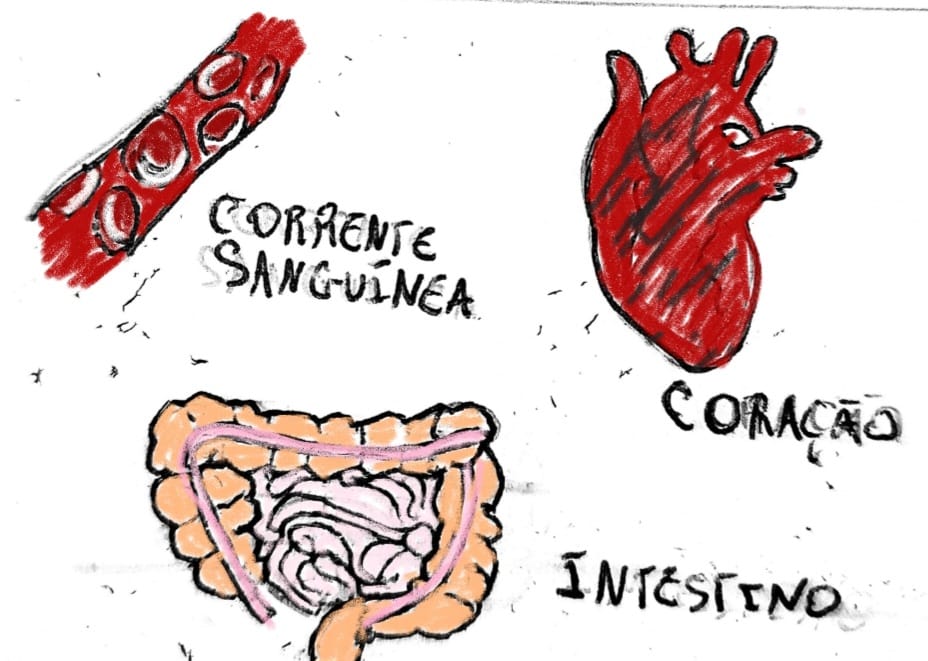 CORRENTE
SANGUÍNEA
CORAÇÃO
INTESTINO